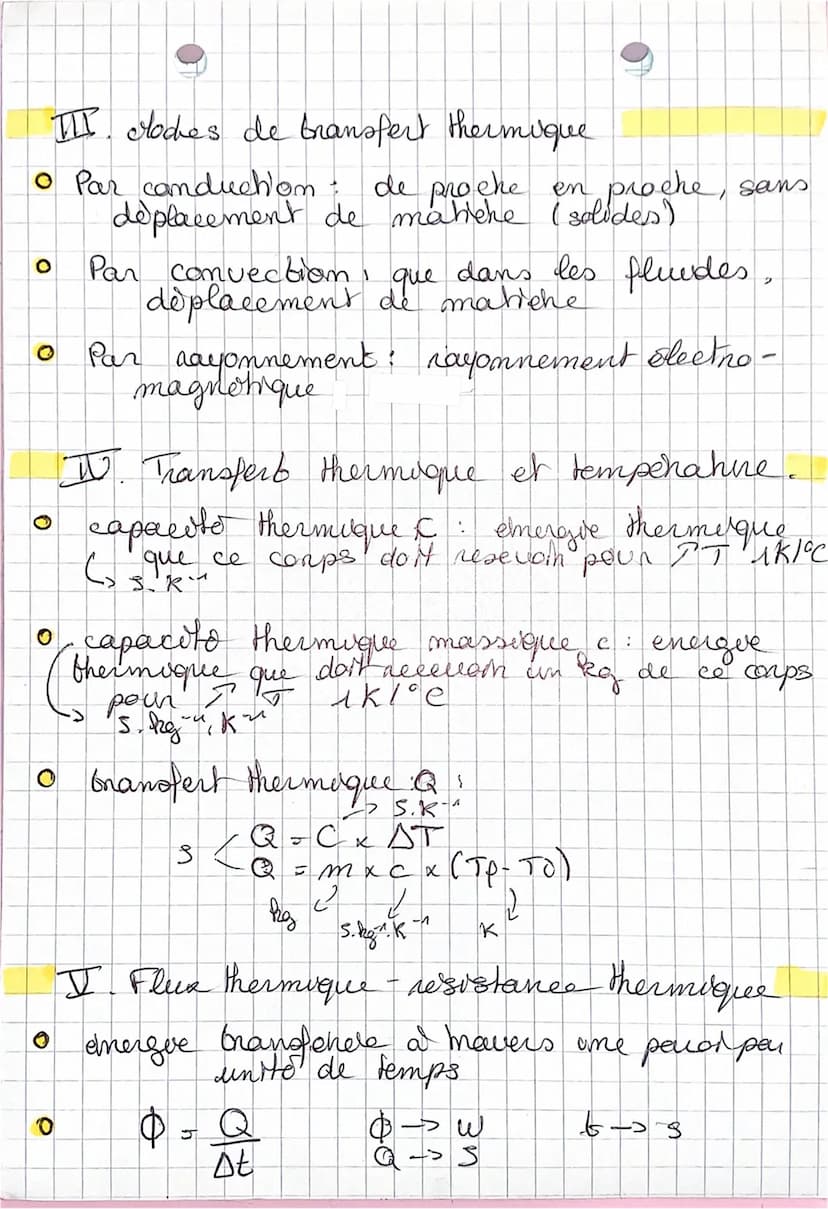 III. Modes de transfert thermique
Par conduction : de proche en proche, sans
déplacement de matière (solides)
Par convection : que dans les fluides,
déplacement de matière
Par rayonnement : rayonnement électro-
magnétique
IV. Transfert thermique et température.
capacité thermique C : énergie thermique
que ce corps doit recevoir pour ↗ T 1K/°C
↳ J.K⁻¹
capacité thermique massique c : energie
thermique que doit recevoir un kg de ce corps
pour ↗ T 1K/°C
↳ J.kg⁻¹.K⁻¹
transfert thermique Q :
↳ J.K⁻¹
Q = C x ΔT
J < Q = m x c x (Tf - T0)
kg J.kg⁻¹.K⁻¹ K
V. Flux thermique - resistance thermique
énergie transférée à travers une paroi par
unité de temps
Φ = Q/Δt Φ -> W t -> s
Q -> J